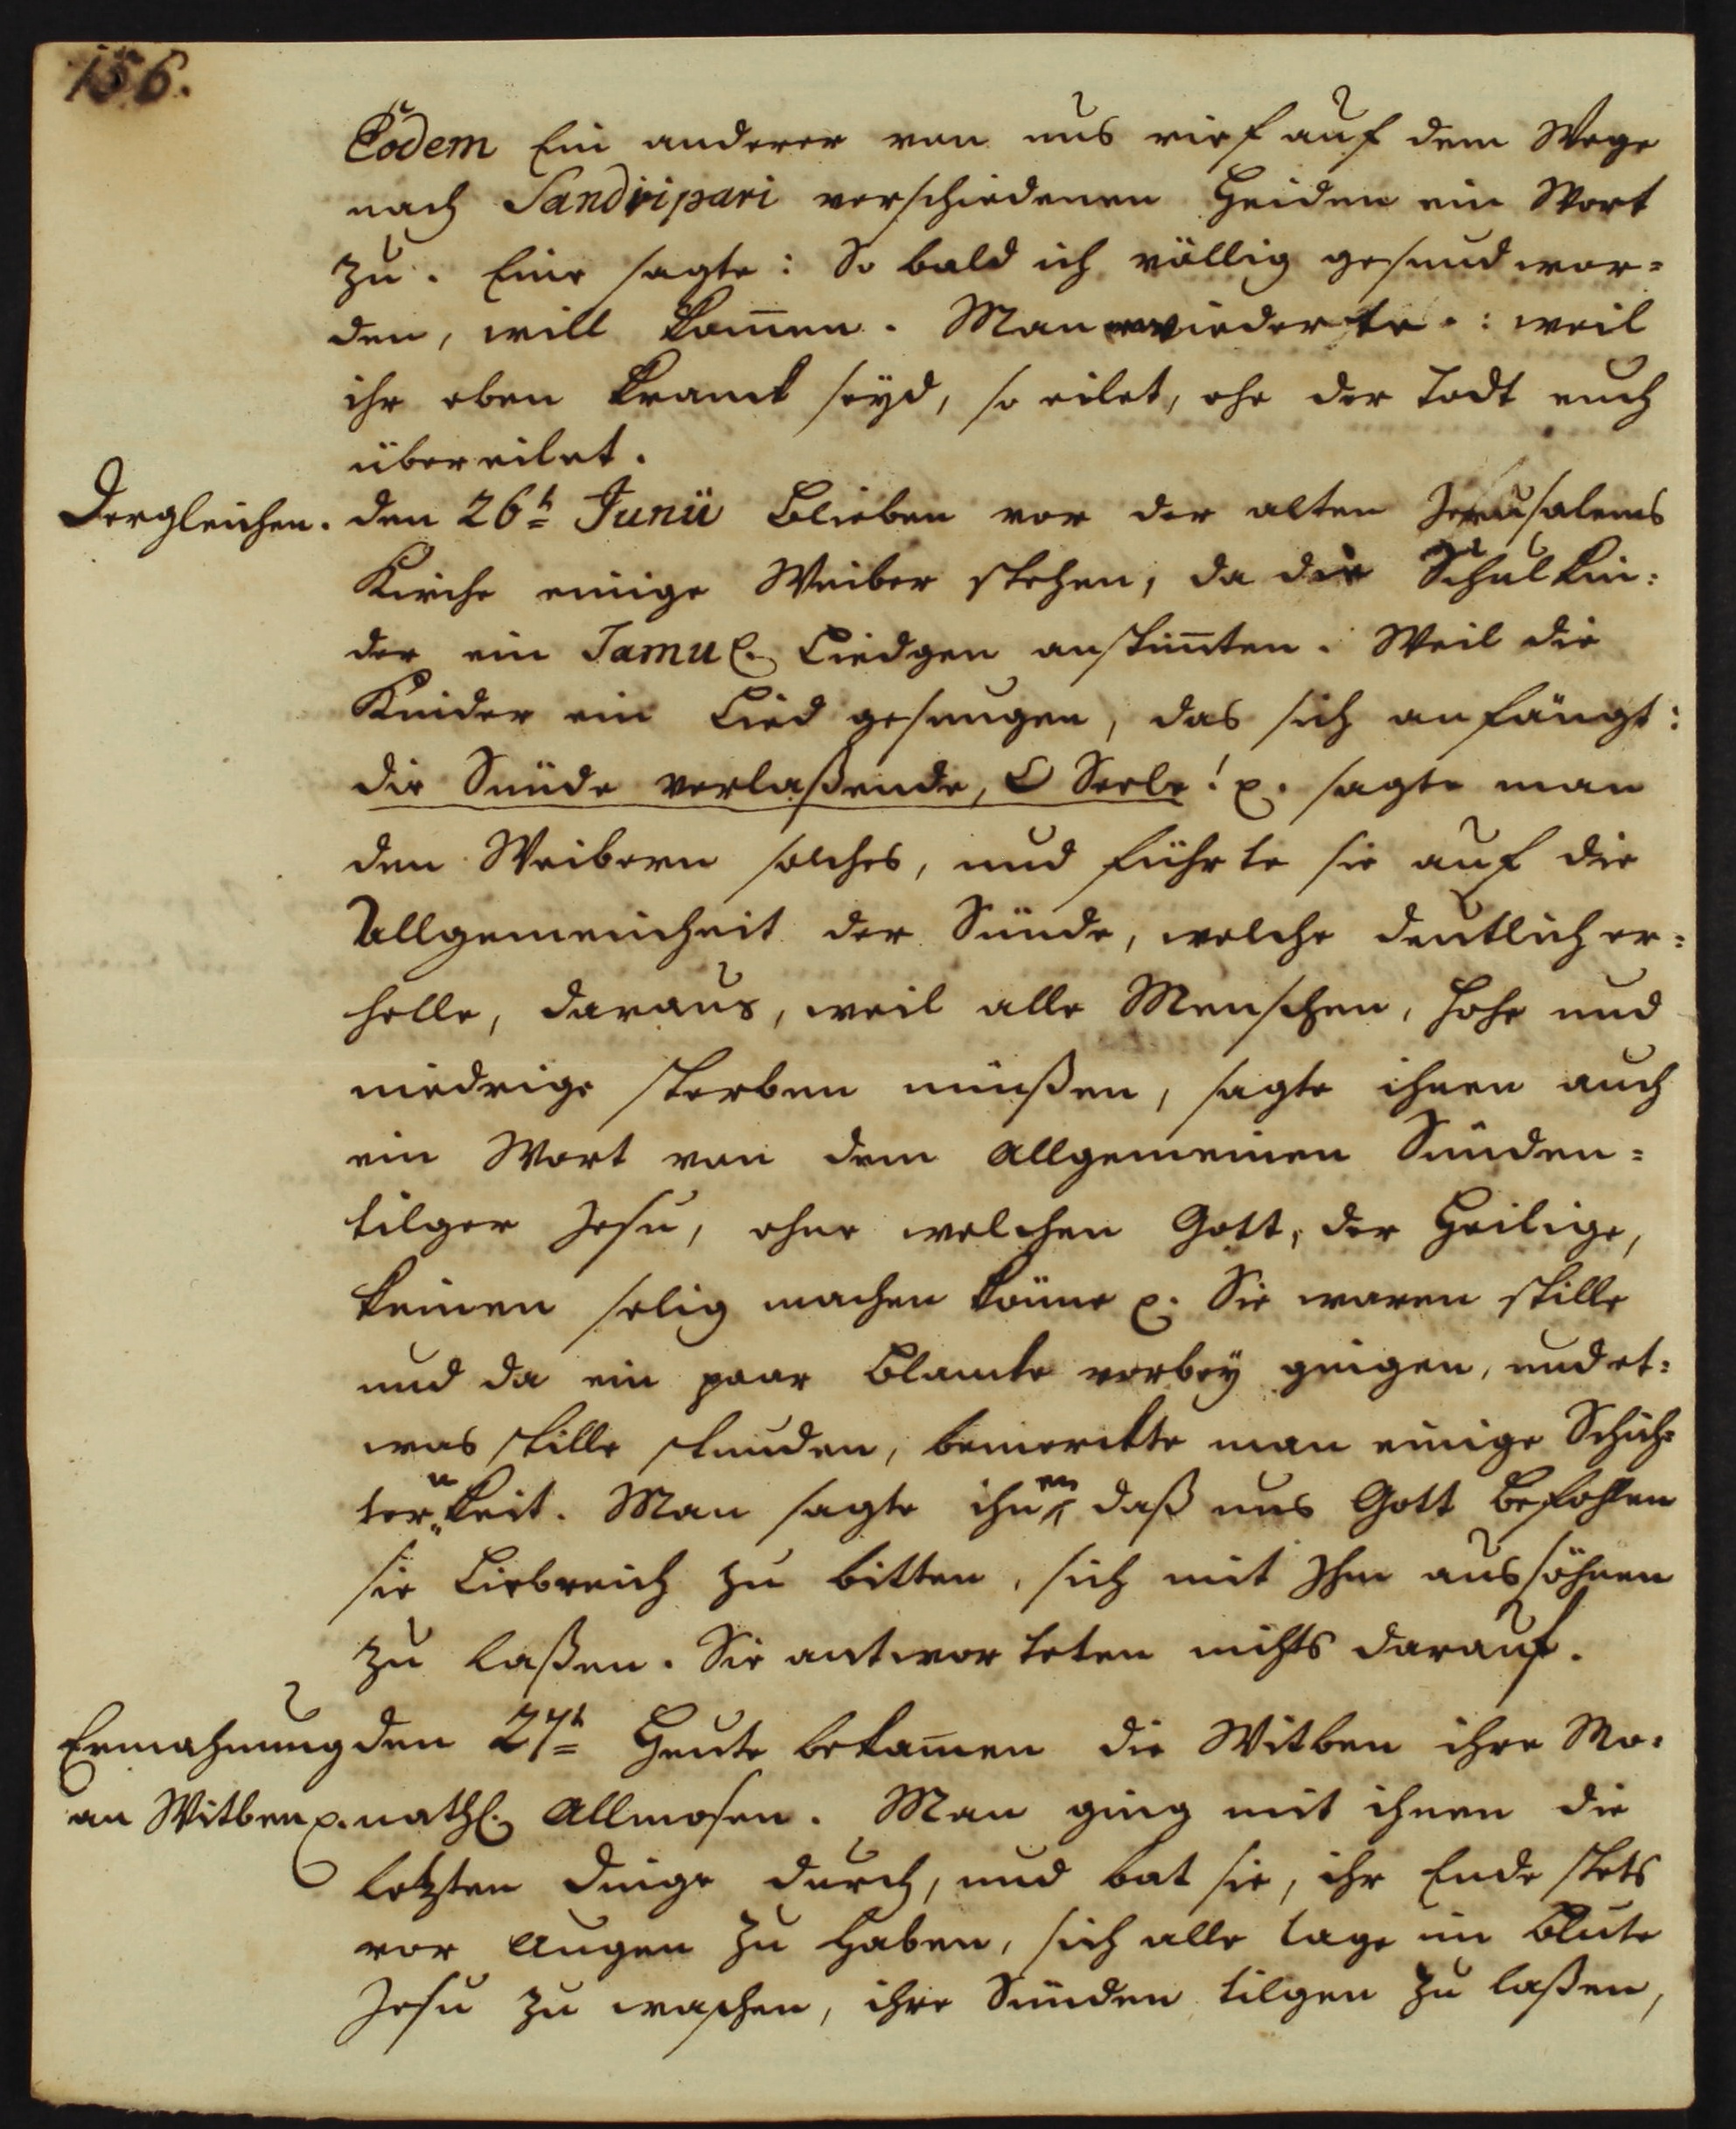 156.
Eodem Ein anderer von uns rief auf dem Wege
nach Sandiripari verschiedenen Heiden ein Wort
zu. Eine sagte: So bald ich völlig gesund wor=
den, will kom̄en. Man erwiederte: weil
ihr eben kranck seyd, so eilet, ehe der Todt euch
übereilet.
Dergleichen. den 26t Junii Blieben vor der alten Jerusalems
Kirche einige Weiber stehen, da die Schulkin=
der ein Tamul. Liedgen anstim̄ten. Weil die
Kinder ein Lied gesungen, das sich anfängt:
die Sünde verlaßende, O Seele! p. sagte man
den Weibern solches, und führte sie auf die
Allgemeinheit der Sünde, welche deutlich er=
helle, daraus, weil alle Menschen, hohe und
niedrige sterben müßen, sagte ihnen auch
ein Wort von dem allgemeinen Sünden=
tilger Jesu, ohne welchen Gott, der Heilige,
keinen selig machen könne p. Sie waren stille
und da ein paar Blancke vorbey gingen, und et=
was stille stunden, bemerckte man einige Schüch=
ternkeit. Man sagte ihnen, daß uns Gott befohlen
sie Liebreich zu bitten, sich mit Ihm aussöhnen
zu laßen. Sie antworteten nichts darauf.
Ermahnung den 27t Heute bekam̄en die Witben ihre Mo=
an Witben p. nathl. Allmosen. Man ging mit ihnen die
letzten Dinge durch, und bat sie, ihr Ende stets
vor Augen zu haben, sich alle Tage im Blute
Jesu zu waschen, ihre Sünden tilgen zu laßen,